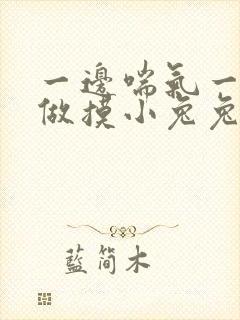 一邊喘氣一
做摸小兔兔
藍簡木